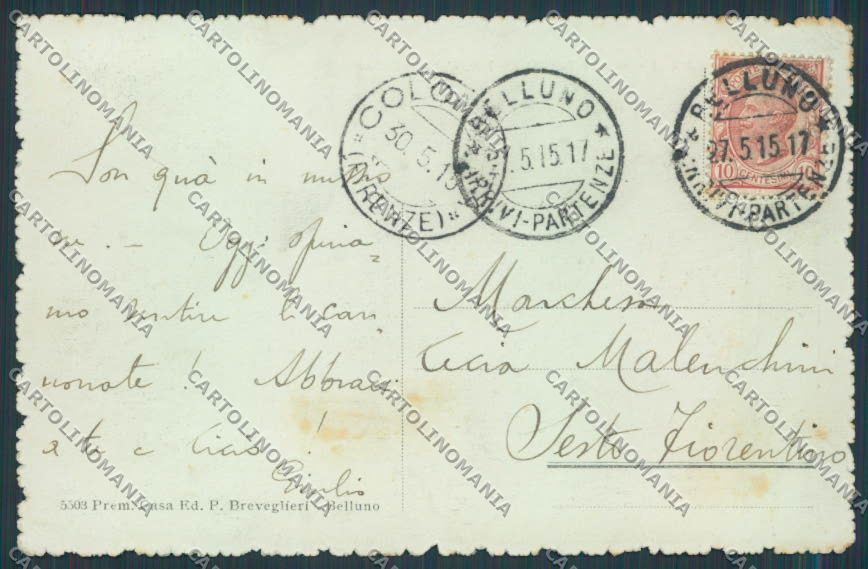 COLO
30.5.15
(FIRENZE)
BELLUNO
5.15.17
ARRIVI-PARTENZE
BELLUNO
27.5.15.17
ARRIVI-PARTENZE
10 CENTESIMI
Son quà in
Oggi spera
mo sentire le can
nonate! Abbracci
a te e Ciao!
Giulio
Marchesa
Malenchini
Sesto Fiorentino
5503 Prem. Casa Ed. P. Breveglieri - Belluno
CARTOLINOMANIA